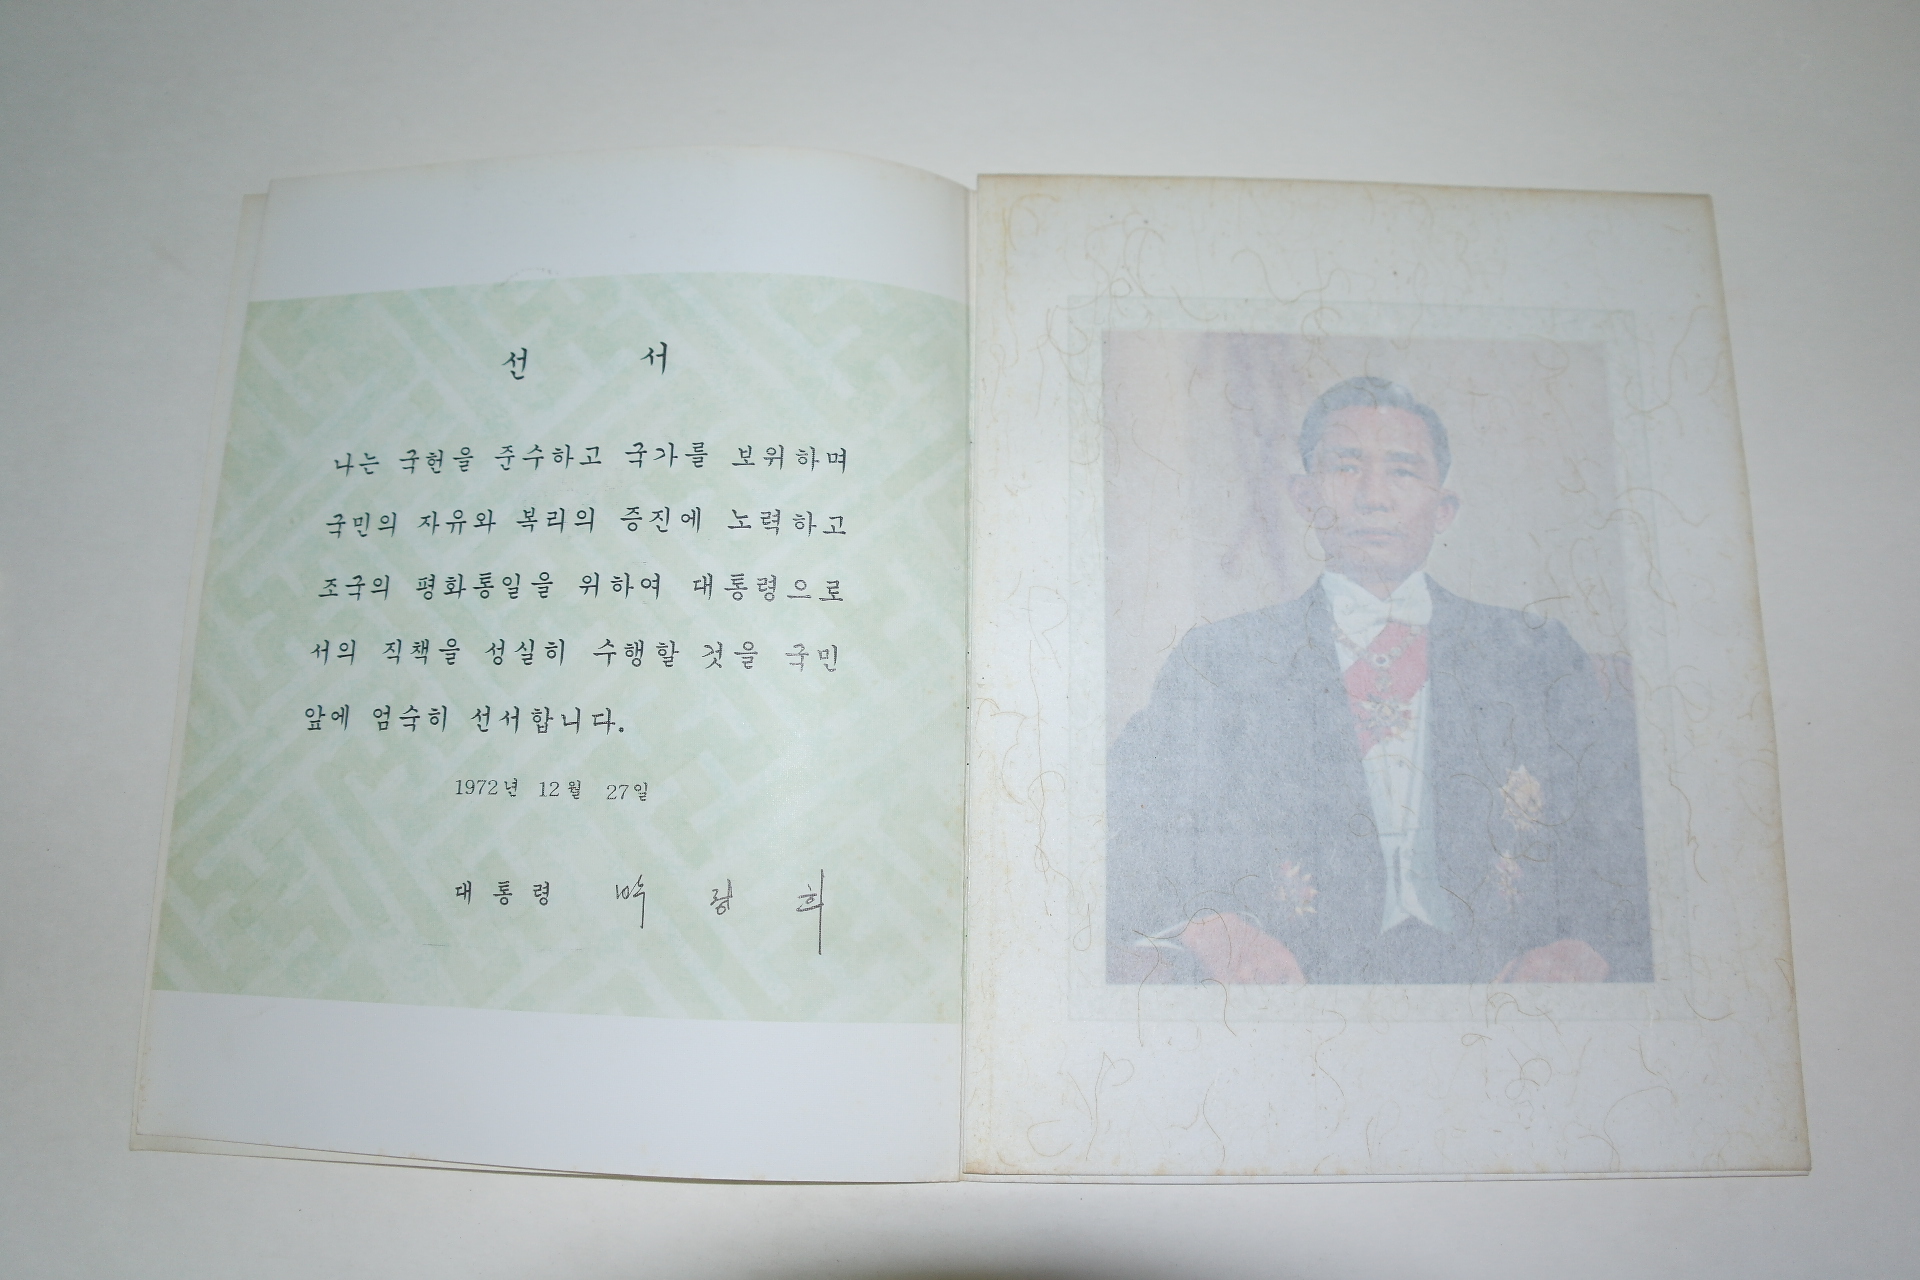 선 서
나는 국헌을 준수하고 국가를 보위하며
국민의 자유와 복리의 증진에 노력하고
조국의 평화통일을 위하여 대통령으로
서의 직책을 성실히 수행할 것을 국민
앞에 엄숙히 선서합니다.
1972년 12월 27일
대통령 박정희